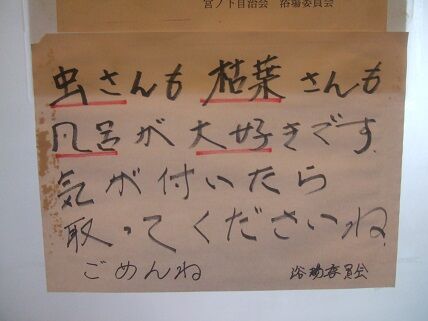 宮ノ下自治会 浴場委員会
虫さんも 枯葉さんも
風呂が大好きです
気が付いたら
取ってくださいね
ごめんね 浴場委員会